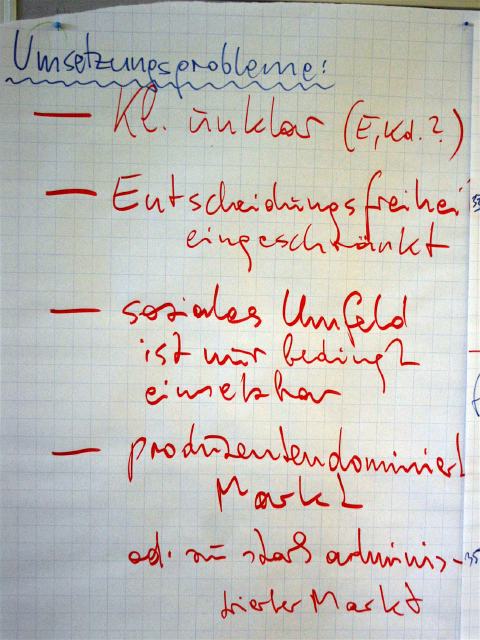 Umsetzungsprobleme:
— Kl. unklar (E, Kd.?)
— Entscheidungsfreihei
eingeschränkt
— soziales Umfeld
ist nur bedingt
einsetzbar
— produzentendominiert
Markt
od. zu stark adminis-
trierter Markt